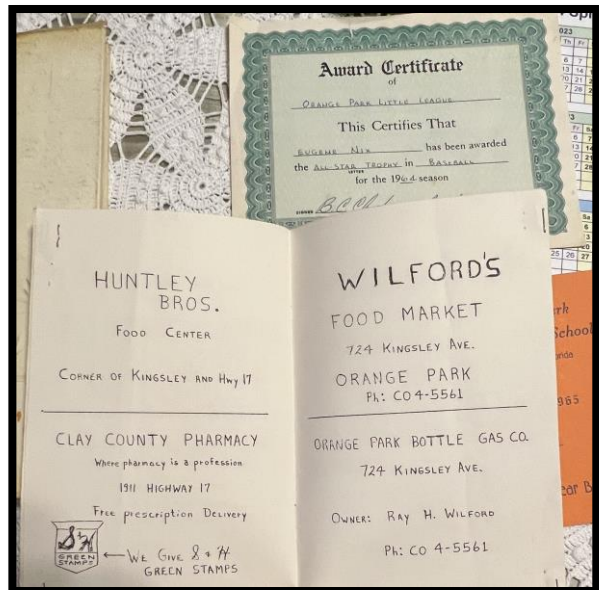 Award Certificate
of
ORANGE PARK LITTLE LEAGUE
This Certifies That
EUGENE NIX has been awarded
the ALL STAR TROPHY in BASEBALL
LETTER
for the 1964 season
SIGNED
HUNTLEY
BROS.
FOOD CENTER
CORNER OF KINGSLEY AND HWY 17
CLAY COUNTY PHARMACY
Where pharmacy is a profession
1911 HIGHWAY 17
Free prescription Delivery
S&H
GREEN
STAMPS
WE GIVE S & H
GREEN STAMPS
WILFORD'S
FOOD MARKET
724 KINGSLEY AVE.
ORANGE PARK
Ph: CO 4-5561
ORANGE PARK BOTTLE GAS CO.
724 KINGSLEY AVE.
OWNER: RAY H. WILFORD
Ph: CO 4-5561
023
Th Fr
6 7
13 14
20 21
Sa
25 26 27
rk
School
965
ear B